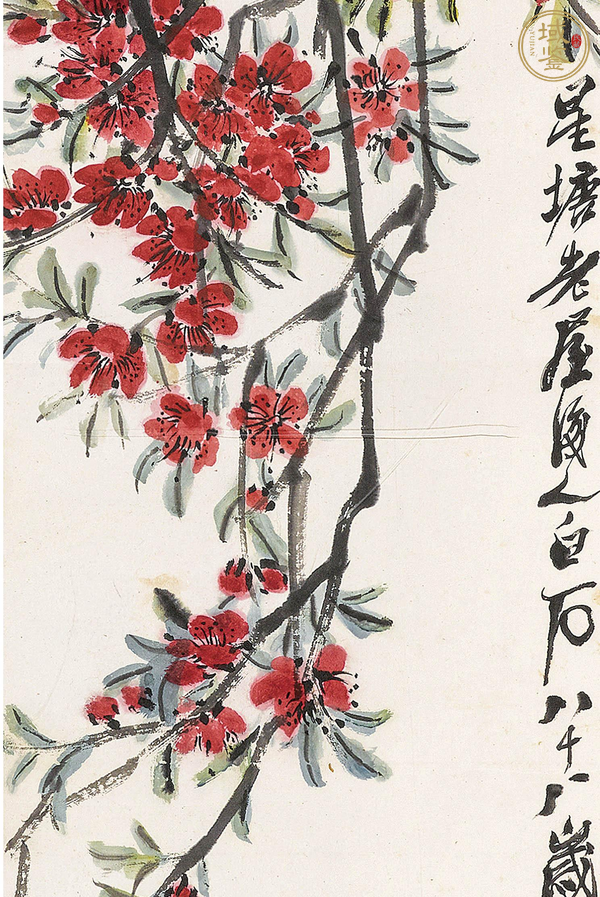 星塘老屋後人白石八十八歲
域鉴
YUJIAN